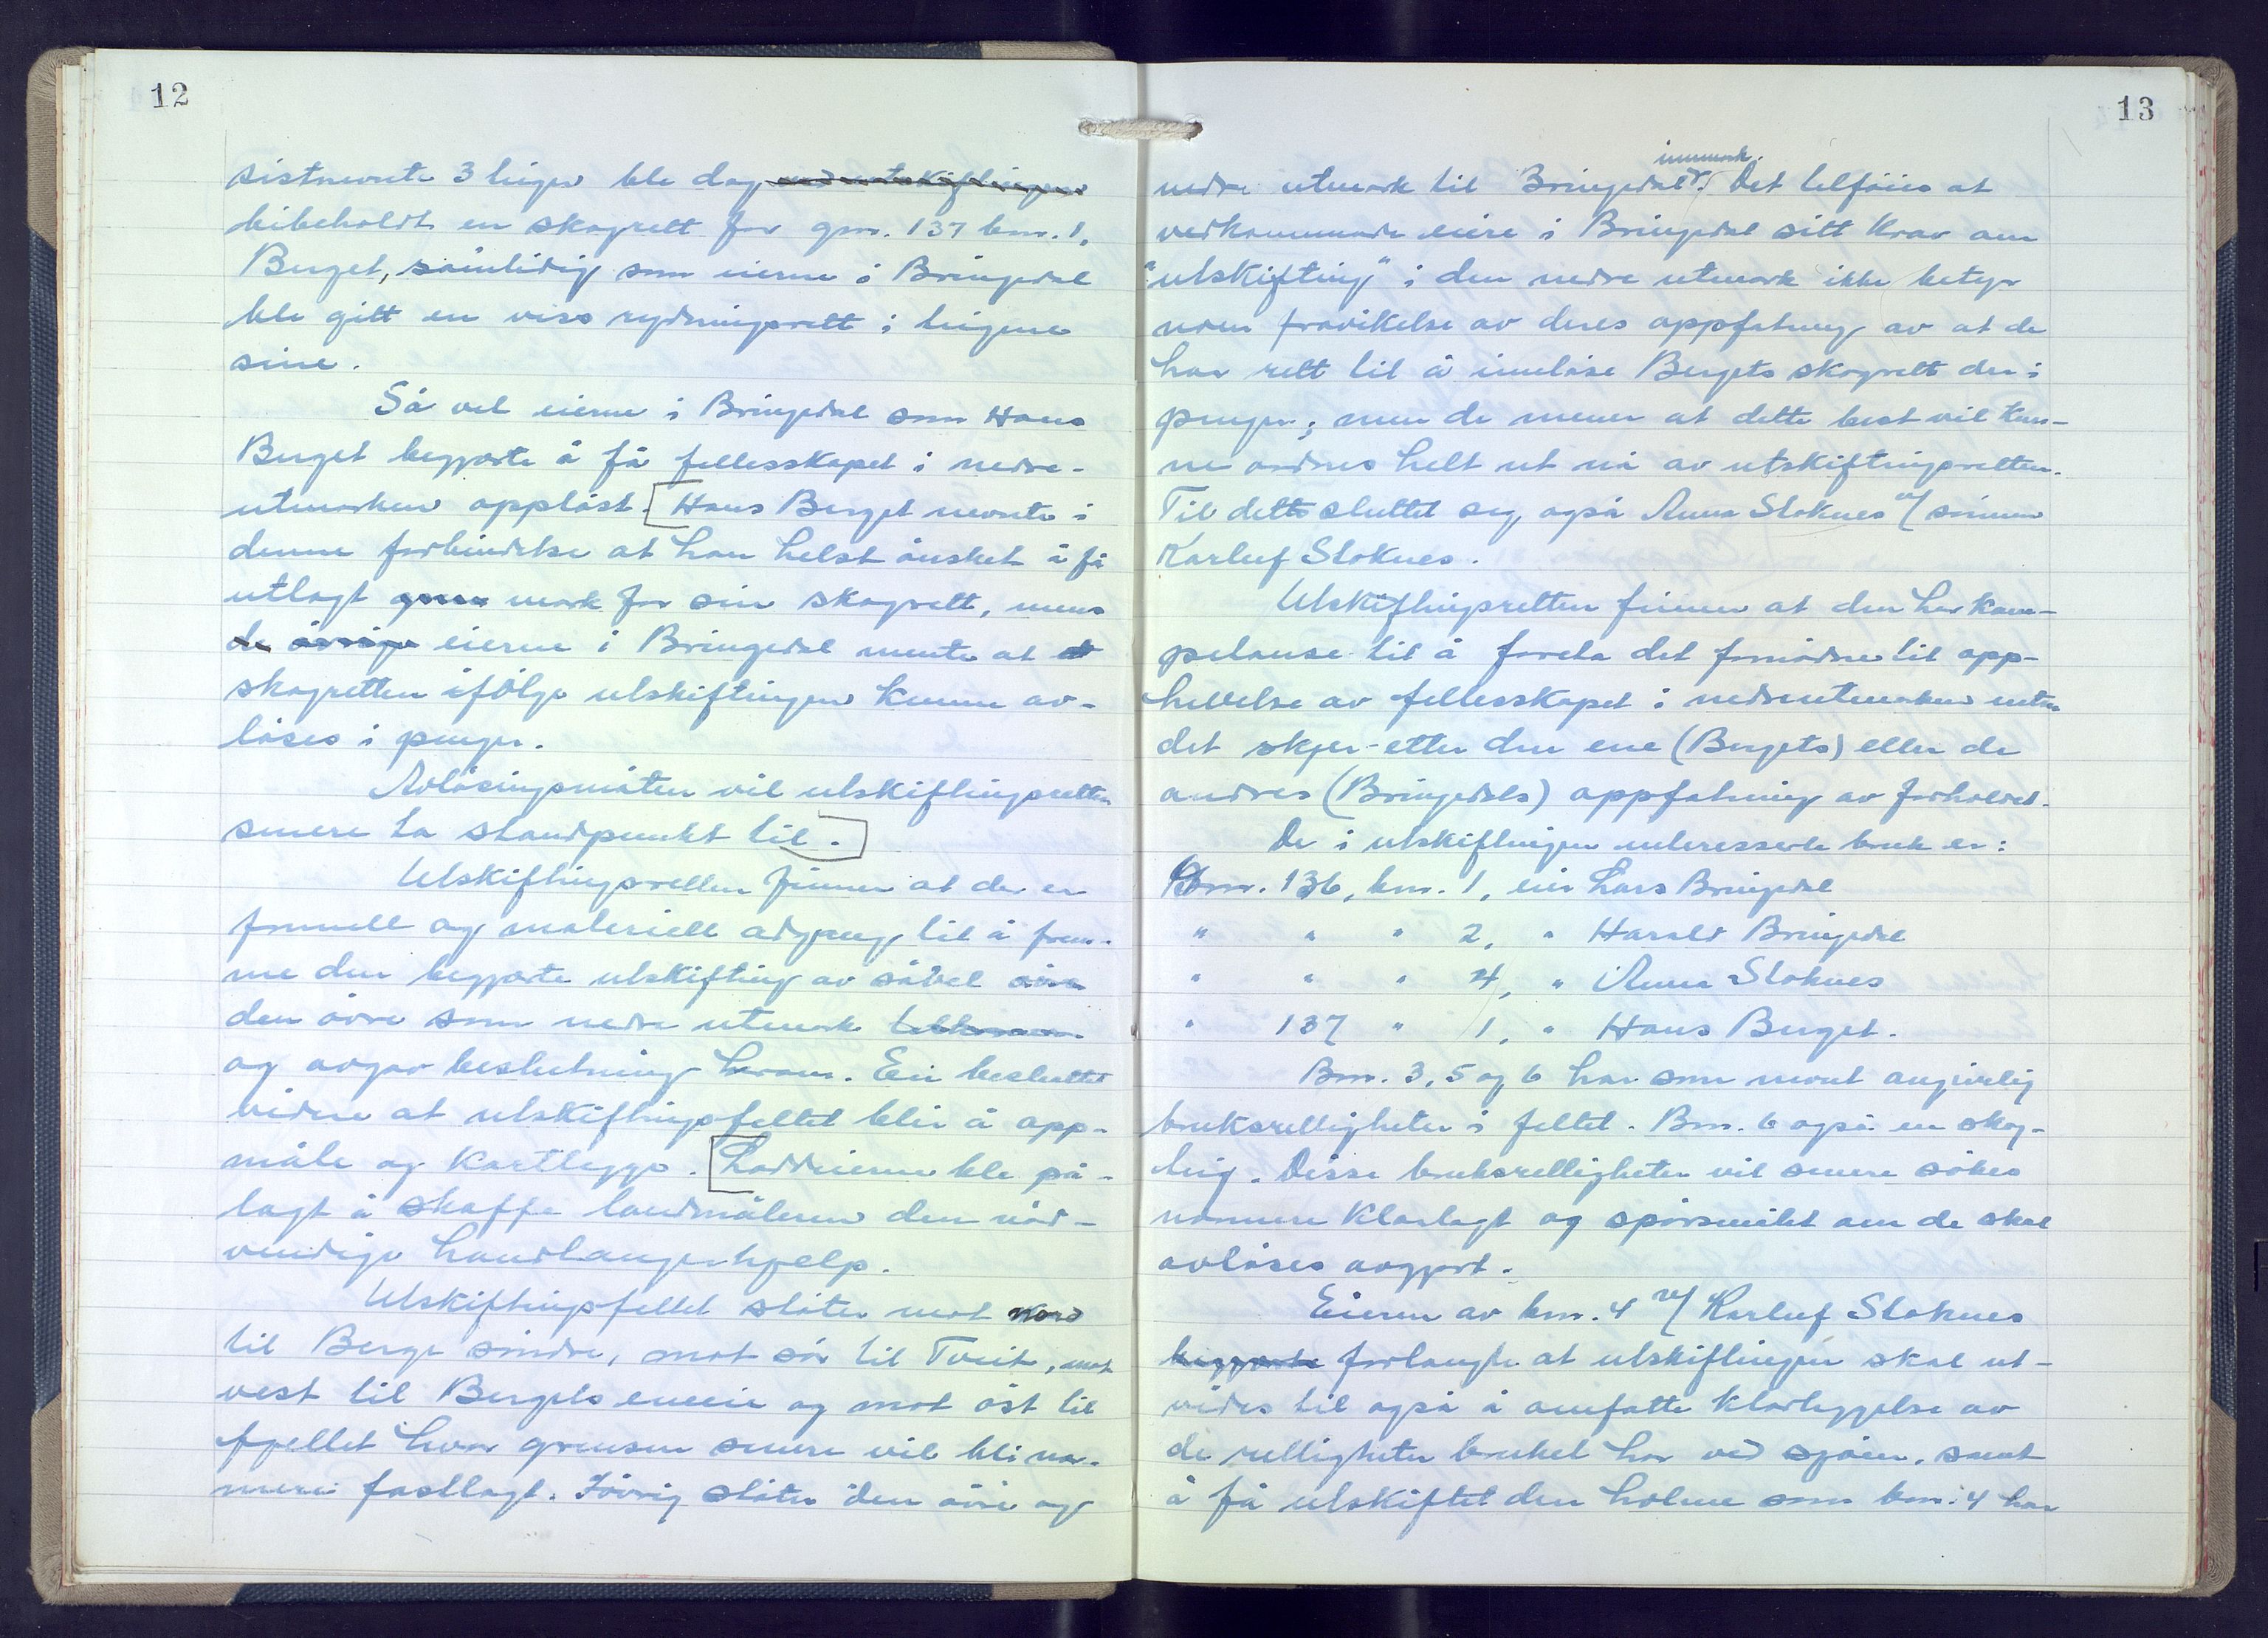 12
sistnevnte 3 teiger ble dog ved utskiftingen
bibeholdt en skogrett for gnr. 137 bnr. 1,
Berget, samtidig som eierne i Bringedal
ble gitt en viss rydningsrett i teigene
sine.
Så vel eierne i Bringedal som Hans
Berget begjærte å få fellesskapet i nedre-
utmarken oppløst. [Hans Berget nevnte i
denne forbindelse at han helst ønsket å få
utlagt grunn mark for sin skogrett, mens
de øvrige eierne i Bringedal mente at
skogretten ifølge utskiftingen kunne av-
løses i penger.
Avløsingsmåten vil utskiftingsretten
senere ta standpunkt til.]
Utskiftingsretten finner at der er
formell og materiell adgang til å frem-
me den begjærte utskifting av såvel øvre
den øvre som nedre utmark
og avgav beslutning herom. Ein besluttet
videre at utskiftingsfeltet blir å opp-
måle og kartlegge. [Loddeierne ble på-
lagt å skaffe landmåleren den nød-
vendige handlangerhjelp.
Utskiftingsfeltet støter mot nord
til Berge søndre, mot sør til Tveit, mot
vest til Bergets eneeie og mot øst til
fjellet hvor grensen senere vil bli nær-
mere fastlagt. Iøvrig støter den øvre og
13
innmark.
nedre utmark til Bringedals. Det tilføies at
vedkommende eiere i Bringedal sitt krav om
"utskifting" i den nedre utmark ikke betyr
noen fravikelse av deres oppfatning av at de
har rett til å innløse Bergets skogrett der i
penger; men de mener at dette best vil kun-
ne ordnes helt ut nå av utskiftingsretten.
Til dette sluttet seg også Anna Stoknes v/ sønnen
Karluf Stoknes.
Utskiftingsretten finner at den har kom-
petanse til å foreta det fornødne til opp-
hevelse av fellesskapet i nedreutmarken enten
det skjer etter den ene (Bergets) eller de
andres (Bringedals) oppfatning av forholdet.
De i utskiftingen interesserte bruk er:
Gnr. 136, bnr. 1, eier Lars Bringedal
" " " 2, " Harald Bringedal
" " " 4, " Anna Stoknes
" 137 " 1, " Hans Berget.
Bnr. 3, 5 og 6 har som nevnt angivelig
bruksrettigheter i feltet. Bnr. 6 også en skog-
teig. Disse bruksrettigheter vil senere søkes
nærmere klarlagt og spørsmålet om de skal
avløses avgjort.
Eieren av bnr. 4 v/ Karluf Stoknes
begjærte forlangte at utskiftingen skal ut-
vides til også å omfatte klarleggelse av
de rettigheter bruket har ved sjøen, samt
å få utskiftet den holme som bnr. 4 har